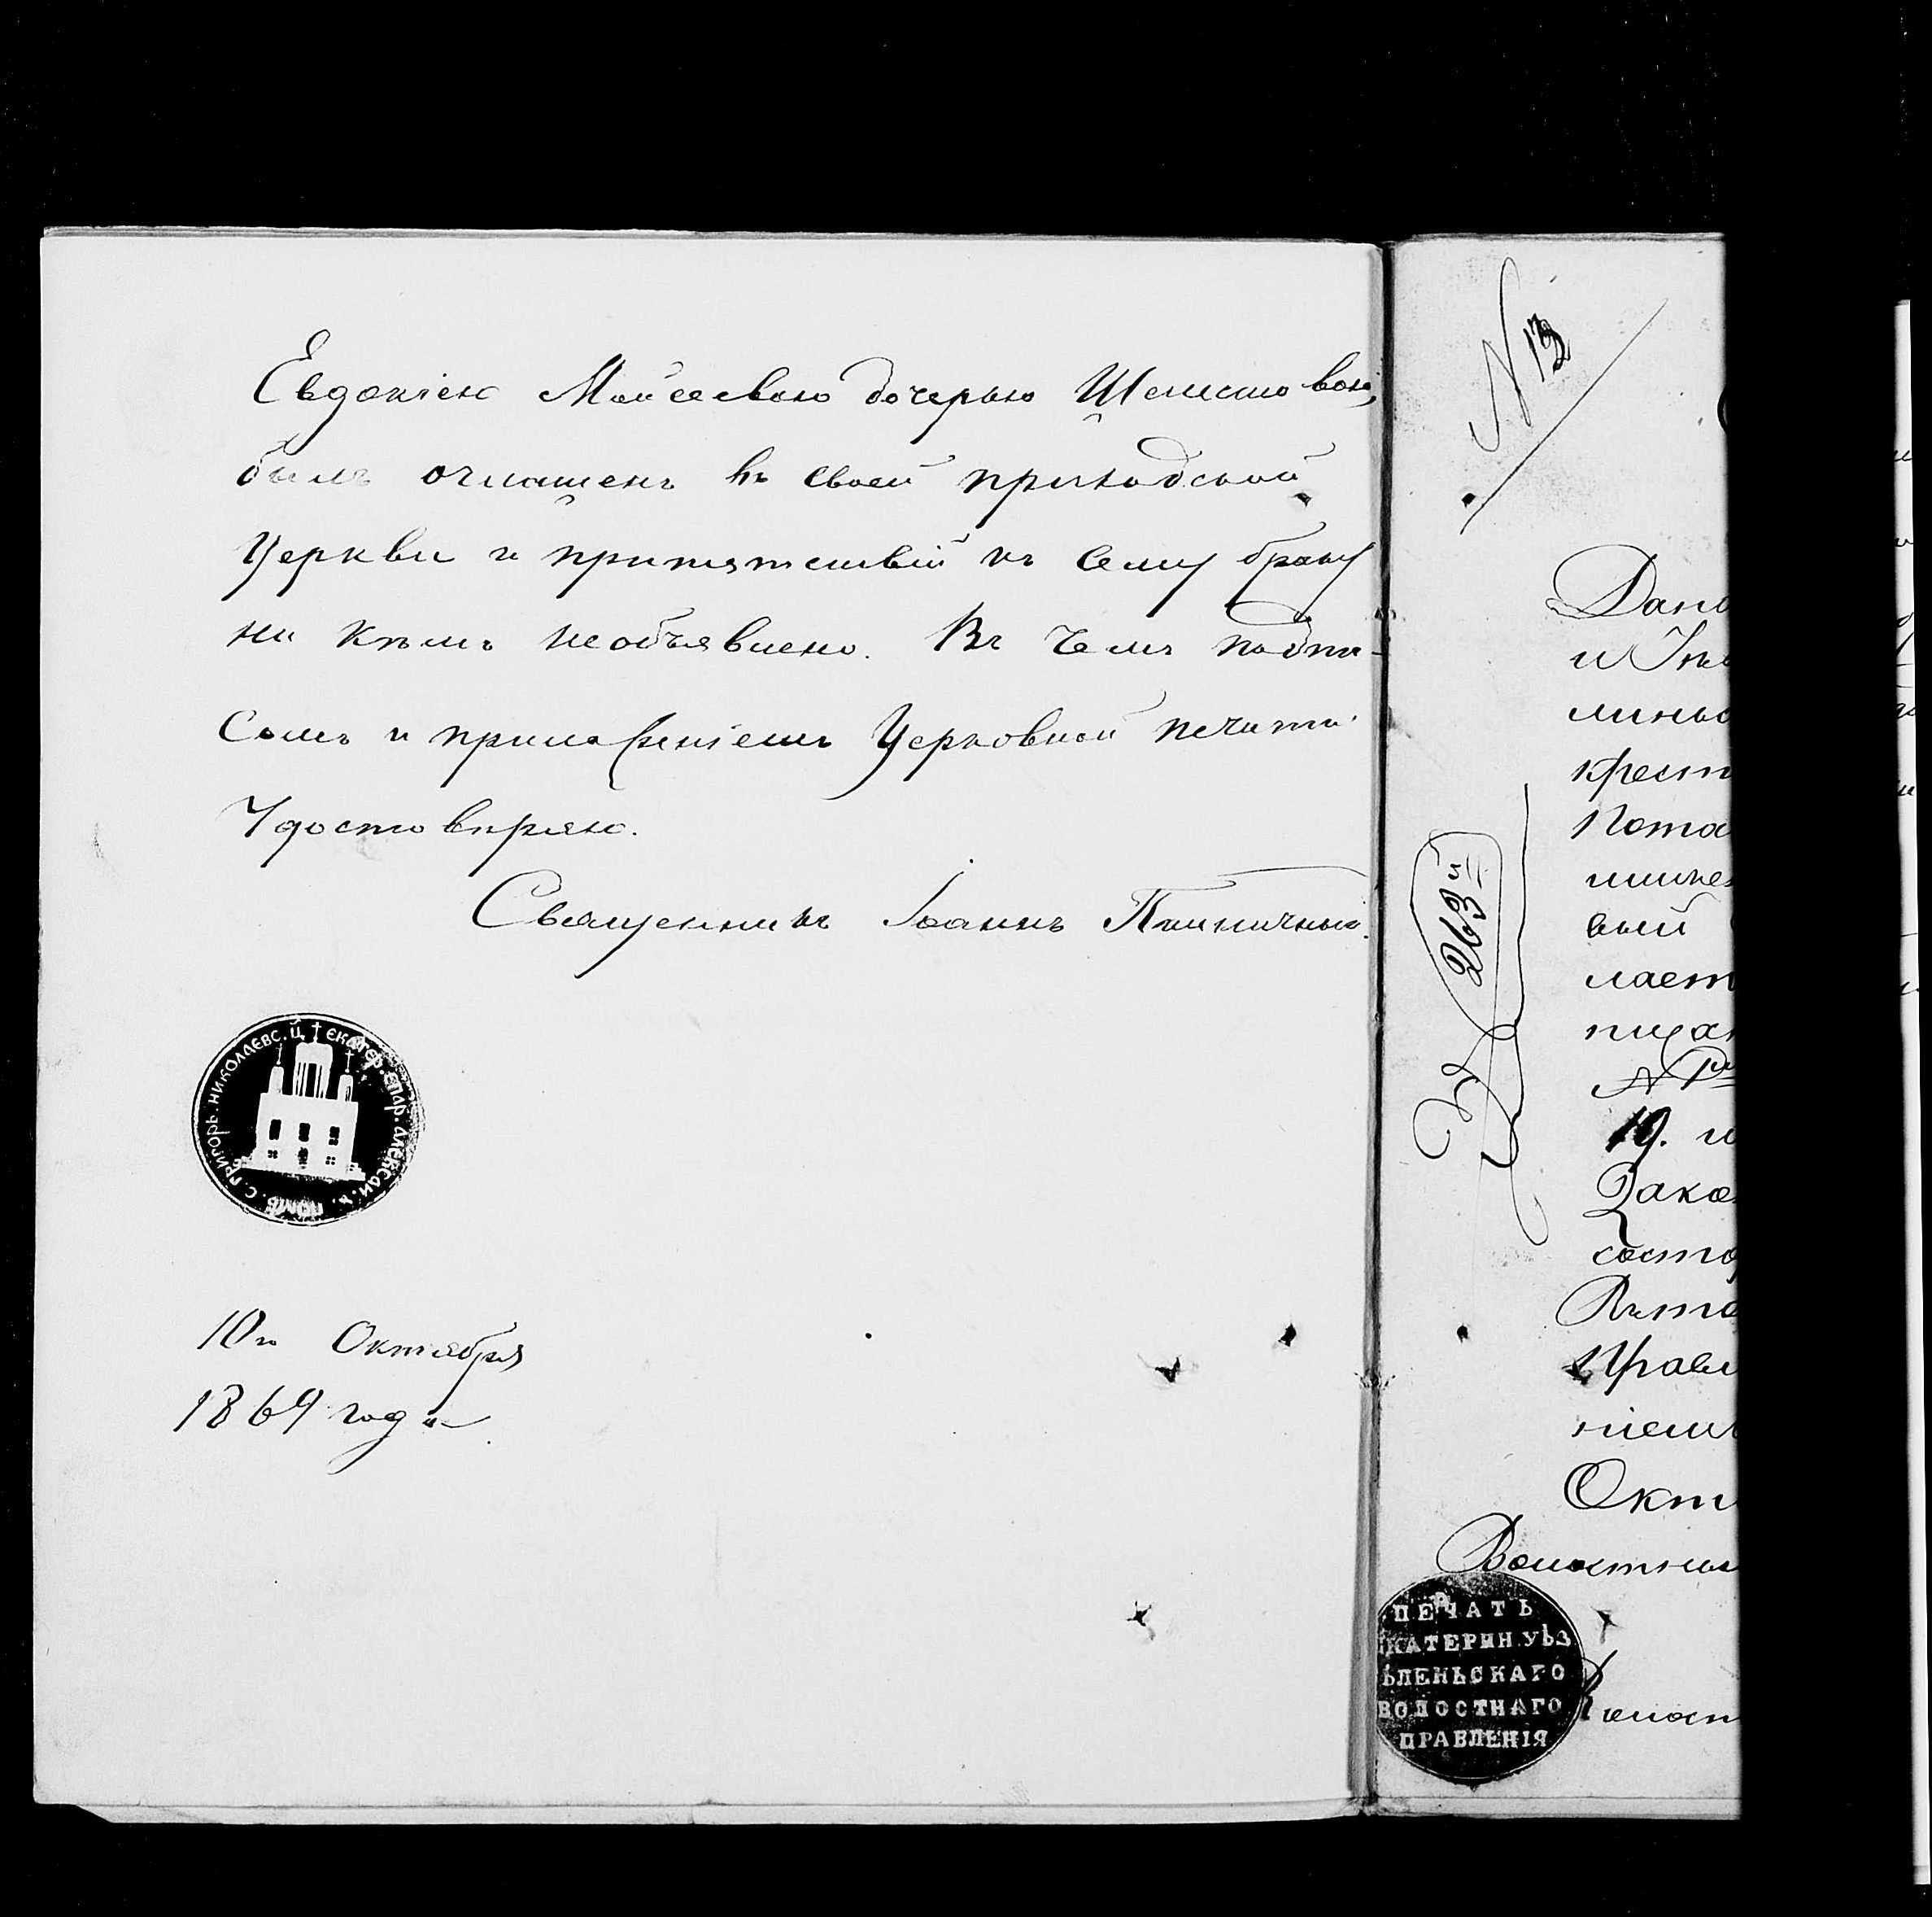 Евдокіею Моисеевою дочерью Шелестовою,
былъ оглашенъ въ своей приходской
Церкви и припятствій къ сему браку
ни кѣмъ необъявлено. Въ чемъ подпи-
сомъ и приложеніемъ Церковной печати
Удостовѣряю.
Священникъ Іоаннъ
НИКОЛАЕВС. Ц. † ЕКАТЕР. ЕПАР. АЛЕКСАН. У. ПОМѢ. С. ГРИГОРЬ.
10го Октября
1869 года
N 13
263й
Дано
и
крест
вый
лает
19. и
Зако
состо
Правл
ніемъ
Окт
Волостный
ПЕЧАТЬ
КАТЕРИН. УѢЗ
ѢЛЕНЬСКАГО
ВОЛОСТНАГО
ПРАВЛЕНІЯ